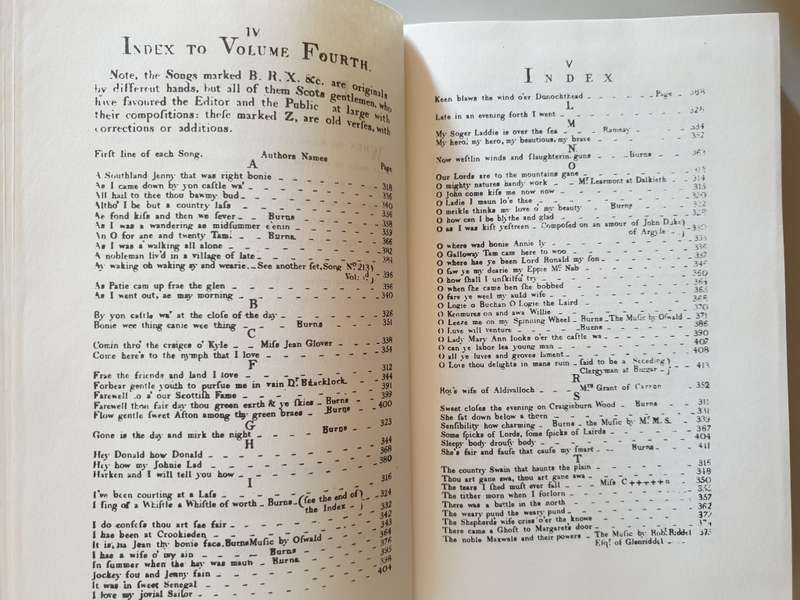 IV
INDEX TO VOLUME FOURTH.
Note, the Songs marked B. R. X. &c. are originals
by different hands, but all of them Scots gentlemen, who
have favoured the Editor and the Public at large with
their compositions: these marked Z, are old verses, with
corrections or additions.
First line of each Song. Authors Names Page
A
A Southland Jenny that was right bonie
As I came down by yon castle wa' 318
All hail to thee thou bawmy bud 336
Altho' I be but a country lass 340
Ae fond kiss and then we sever Burns
As I was a wandering ae midsummer e'enin
An O for ane and twenty Tam Burns
As I was a walking all alone
A nobleman liv'd in a village of late
Ay waking oh waking ay and wearie. See another set, Song No. 213 Vol: 396
As Patie cam up frae the glen 336
As I went out, ae may morning 340
B
By yon castle wa' at the close of the day 326
Bonie wee thing canie wee thing Burns 351
C
Comin thro' the craiges o' Kyle Miss Jean Glover 338
Come here's to the nymph that I love 354
F
Frae the friends and land I love 312
Forbear gentle youth to pursue me in vain Dr. Blacklock 344
Farewell to a' our Scottish Fame 391
Farewell thou fair day thou green earth & ye skies Burns 399
Flow gentle sweet Afton among thy green braes Burns 400
G
Gone is the day and mirk the night Burns 323
H
Hey Donald how Donald 344
Hey how my Johnie Lad 368
Harken and I will tell you how 380
I
I've been courting at a Lass 316
I sing of a Whistle a Whistle of worth Burns (see the end of the Index 324
I do confess thou art sae fair 332
I has been at Crookieden 342
It is na Jean thy bonie face. Burns Music by Oswald
I has a wife o' my ain Burns
In summer when the hay was mawn Burns
Jockey fou and Jenny fain
It was in sweet Senegal
I love my jovial Sailor
V
INDEX
Keen blaws the wind o'er Donochthead Page
L
Late in an evening forth I went 328
M
My Soger Laddie is over the sea Ramsay 334
My hero, my hero, my beautious, my brave 352
N
Now westlin winds and slaughtering guns Burns 363
O
Our Lords are to the mountains gane
O mighty natures handy work Mr. Learmont at Dalkieth 314
O John come kiss me now now 315
O Ladie I maun lo'e thee
O meikle thinks my love o' my beauty Burns
O how can I be blythe and glad
O as I was kist yestreen Composed on an amour of John Duke of Argyle
O where wad bonie Annie ly
O Galloway Tam cam here to woo
O where has ye been Lord Ronald my son
O saw ye my dearie my Eppie Mc. Nab
O how shall I unskilfu' try 360
O when she came ben she bobbed 364
O fare ye weel my auld wife 365
O Logie o Buchan O Logie the Laird 368
O Kenmures on and awa Willie 370
O Leeze me on my Spinning Wheel Burns The Music by Oswald 371
O Luve will venture Burns 386
O Lady Mary Ann looks o'er the castle wa 390
O can ye labor lea young man 407
O all ye luves and groves lament 408
O Love thou delights in mans ruin said to be a Seceding Clergyman at Biggar 413
R
Roy's wife of Aldivalloch Mrs. Grant of Carron 352
S
Sweet closes the evening on Craigieburn Wood Burns 311
She sat down below a thorn 331
Sensibility how charming Burns the Music by Mrs. M. S. 339
Some spicks of Lords, some spicks of Lairds 367
Sleepy body drousy body 404
She's fair and fause that cause my smart Burns 411
T
The country Swain that haunts the plain 316
Thou art gane awa, thou art gane awa 348
The tears I shed must ever fall Miss C++++++ 350
The tither morn when I forlorn
There was a battle in the north 357
The weary pund the weary pund 362
The Shepherds wife cries o'er the knowe
There came a Ghost to Margaret's door
The noble Maxwels and their powers The Music by Robt. Riddel Esqr. of Glenriddel